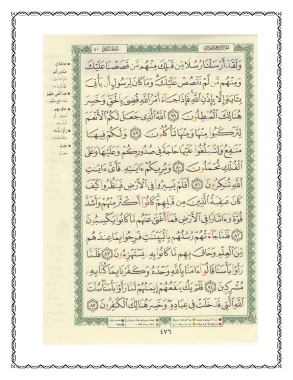 وَلَقَدْ أَرْسَلْنَا رُسُلًا مِّن قَبْلِكَ مِنْهُم مَّن قَصَصْنَا عَلَيْكَ
وَمِنْهُم مَّن لَّمْ نَقْصُصْ عَلَيْكَ وَمَا كَانَ لِرَسُولٍ أَن يَأْتِىَ
بِـَٔايَةٍ إِلَّا بِإِذْنِ ٱللَّهِ فَإِذَا جَآءَ أَمْرُ ٱللَّهِ قُضِىَ بِٱلْحَقِّ وَخَسِرَ
هُنَالِكَ ٱلْمُبْطِلُونَ ٧٨ ٱللَّهُ ٱلَّذِى جَعَلَ لَكُمُ ٱلْأَنْعَٰمَ
لِتَرْكَبُوا۟ مِنْهَا وَمِنْهَا تَأْكُلُونَ ٧٩ وَلَكُمْ فِيهَا
مَنَٰفِعُ وَلِتَبْلُغُوا۟ عَلَيْهَا حَاجَةً فِى صُدُورِكُمْ وَعَلَيْهَا وَعَلَى
ٱلْفُلْكِ تُحْمَلُونَ ٨٠ وَيُرِيكُمْ ءَايَٰتِهِۦ فَأَىَّ ءَايَٰتِ
ٱللَّهِ تُنكِرُونَ ٨١ أَفَلَمْ يَسِيرُوا۟ فِى ٱلْأَرْضِ فَيَنظُرُوا۟ كَيْفَ
كَانَ عَٰقِبَةُ ٱلَّذِينَ مِن قَبْلِهِمْ كَانُوٓا۟ أَكْثَرَ مِنْهُمْ وَأَشَدَّ
قُوَّةً وَءَاثَارًا فِى ٱلْأَرْضِ فَمَآ أَغْنَىٰ عَنْهُم مَّا كَانُوا۟ يَكْسِبُونَ
٨٢ فَلَمَّا جَآءَتْهُمْ رُسُلُهُم بِٱلْبَيِّنَٰتِ فَرِحُوا۟ بِمَا عِندَهُم
مِّنَ ٱلْعِلْمِ وَحَاقَ بِهِم مَّا كَانُوا۟ بِهِۦ يَسْتَهْزِءُونَ ٨٣ فَلَمَّا
رَأَوْا۟ بَأْسَنَا قَالُوٓا۟ ءَامَنَّا بِٱللَّهِ وَحْدَهُۥ وَكَفَرْنَا بِمَا كُنَّا بِهِۦ
مُشْرِكِينَ ٨٤ فَلَمْ يَكُ يَنفَعُهُمْ إِيمَٰنُهُمْ لَمَّا رَأَوْا۟ بَأْسَنَا سُنَّتَ
ٱللَّهِ ٱلَّتِى قَدْ خَلَتْ فِى عِبَادِهِۦ وَخَسِرَ هُنَالِكَ ٱلْكَٰفِرُونَ ٨٥
٤٧٦